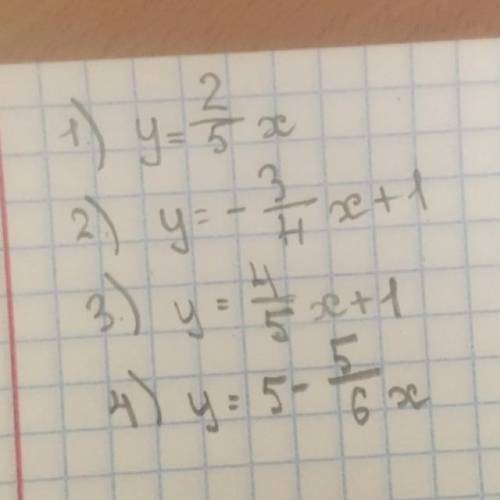 1) y = 2/5 x
2.) y = - 3/4 x + 1
3.) y = 4/5 x + 1
4) y = 5 - 5/6 x